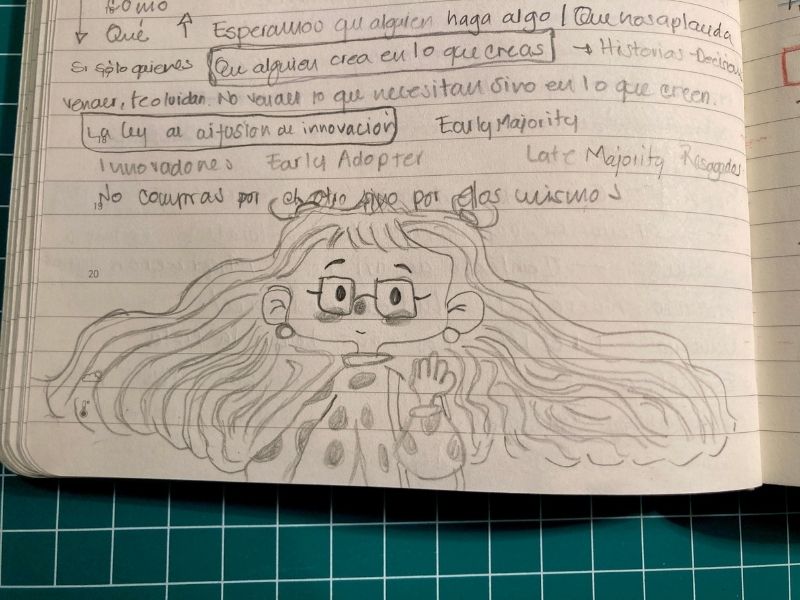 Cómo
Qué ↑ Esperamos que alguien haga algo / Que nos aplauda
Si sólo quieres Que alguien crea en lo que creas → Historias - Decisiones
vender, te olvidan. No vender lo que necesitan sino en lo que creen.
La ley de difusión de innovación Early Majority
18
Innovadores Early Adopter Late Majority Resagados
No compras por el otro sino por ellos mismos
19
20